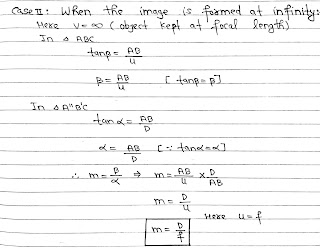 Case II: When the image is formed at infinity:
Here v=∞ (object kept at focal length)
In Δ ABC
tanβ = AB/u
β = AB/u [tanβ=β]
In Δ A"B'C
tanα = AB/D
α = AB/D [∵ tanα=α]
∴ m = β/α ⇒ m = AB/u × D/AB
m = D/u
Here u=f
m = D/f